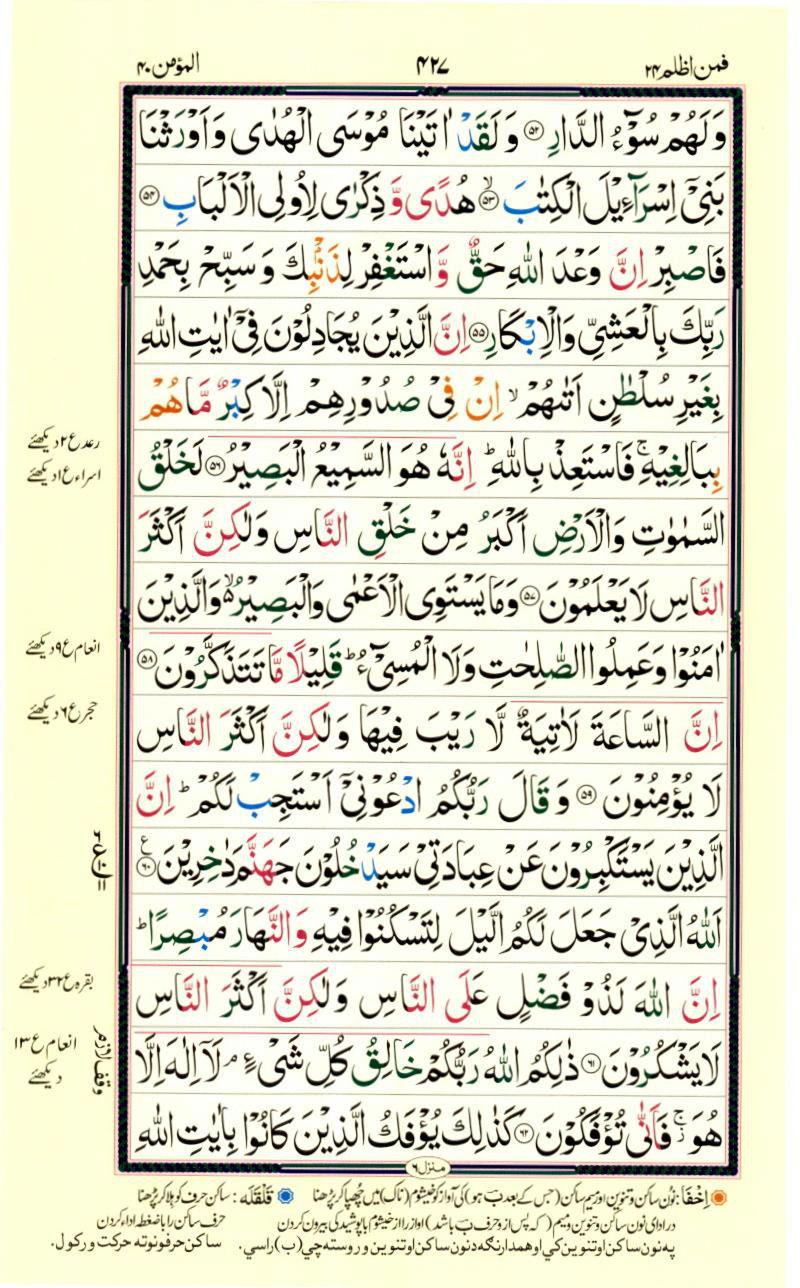 فمن اظلم ۲۴
۴۲۷
المؤمن ۴۰
وَلَهُمْ سُوْٓءُ الدَّارِ ﴿۵۲﴾ وَلَقَدْ اٰتَيْنَا مُوْسَى الْهُدٰى وَاَوْرَثْنَا
بَنِيْٓ اِسْرَآءِيْلَ الْكِتٰبَ ۙ﴿۵۳﴾ هُدًى وَّذِكْرٰى لِاُولِى الْاَلْبَابِ ﴿۵۴﴾
فَاصْبِرْ اِنَّ وَعْدَ اللّٰهِ حَقٌّ وَّاسْتَغْفِرْ لِذَنْۢبِكَ وَسَبِّحْ بِحَمْدِ
رَبِّكَ بِالْعَشِيِّ وَالْاِبْكَارِ ﴿۵۵﴾ اِنَّ الَّذِيْنَ يُجَادِلُوْنَ فِيْٓ اٰيٰتِ اللّٰهِ
بِغَيْرِ سُلْطٰنٍ اَتٰىهُمْ ۙ اِنْ فِيْ صُدُوْرِهِمْ اِلَّا كِبْرٌ مَّا هُمْ
رعد ع ۲ دیکھئے
بِبَالِغِيْهِ ۚ فَاسْتَعِذْ بِاللّٰهِ ؕ اِنَّهٗ هُوَ السَّمِيْعُ الْبَصِيْرُ ﴿۵۶﴾ لَخَلْقُ
اسراء ع ۱ دیکھئے
السَّمٰوٰتِ وَالْاَرْضِ اَكْبَرُ مِنْ خَلْقِ النَّاسِ وَلٰكِنَّ اَكْثَرَ
النَّاسِ لَا يَعْلَمُوْنَ ﴿۵۷﴾ وَمَا يَسْتَوِى الْاَعْمٰى وَالْبَصِيْرُ ۙ۬ وَالَّذِيْنَ
اٰمَنُوْا وَعَمِلُوا الصّٰلِحٰتِ وَلَا الْمُسِيْٓءُ ؕ قَلِيْلًا مَّا تَتَذَكَّرُوْنَ ﴿۵۸﴾
انعام ع ۹ دیکھئے
اِنَّ السَّاعَةَ لَاٰتِيَةٌ لَّا رَيْبَ فِيْهَا وَلٰكِنَّ اَكْثَرَ النَّاسِ
حجر ع ۶ دیکھئے
لَا يُؤْمِنُوْنَ ﴿۵۹﴾ وَقَالَ رَبُّكُمُ ادْعُوْنِيْٓ اَسْتَجِبْ لَكُمْ ؕ اِنَّ
الَّذِيْنَ يَسْتَكْبِرُوْنَ عَنْ عِبَادَتِيْ سَيَدْخُلُوْنَ جَهَنَّمَ دٰخِرِيْنَ ﴿۶۰﴾ ع
اَللّٰهُ الَّذِيْ جَعَلَ لَكُمُ الَّيْلَ لِتَسْكُنُوْا فِيْهِ وَالنَّهَارَ مُبْصِرًا ؕ
اِنَّ اللّٰهَ لَذُوْ فَضْلٍ عَلَى النَّاسِ وَلٰكِنَّ اَكْثَرَ النَّاسِ
بقره ع ۳۲ دیکھئے
لَا يَشْكُرُوْنَ ﴿۶۱﴾ ذٰلِكُمُ اللّٰهُ رَبُّكُمْ خَالِقُ كُلِّ شَيْءٍ ۘ لَآ اِلٰهَ اِلَّا
انعام ع ۱۳
دیکھئے
وقف لازم
هُوَ ۚ ز فَاَنّٰى تُؤْفَكُوْنَ ﴿۶۲﴾ كَذٰلِكَ يُؤْفَكُ الَّذِيْنَ كَانُوْا بِاٰيٰتِ اللّٰهِ
منزل ۶
اِخْفَا: نُون ساکن و تنوین اور میم ساکن (جس کے بعد ب ہو) کی آواز کو خیشوم (ناک) میں چھپا کر پڑھنا
قَلْقَلَه: ساکن حرف کو ہلا کر پڑھنا
در ادای نون ساکن و تنوین و میم (که پس از و حرف ب باشد) اواز را از خیشوم با پوشیدگی بیرون کردن
حرف ساکن را با ضغطه ادا کردن
په نون ساکن او تنوین کي او همدارنگه د نون ساکن او تنوین وروسته چي (ب) راسي.
ساکن حرفونو ته حرکت ورکول.